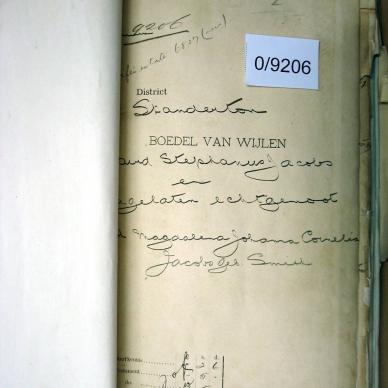 9206
0/9206
District
Standerton
BOEDEL VAN WIJLEN
Stephanus Jacobs
en
gelaten echtgenoot
Magdalena Johana Cornelia
Jacobs geb. Smit